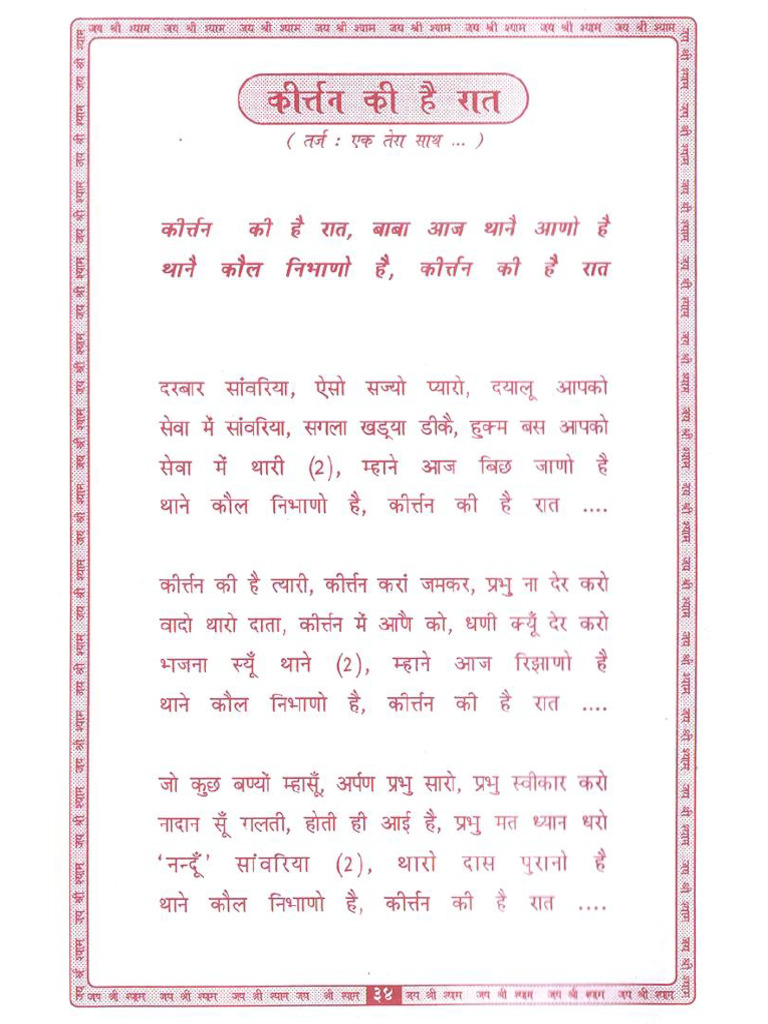 जय श्री श्याम जय श्री श्याम जय श्री श्याम जय श्री श्याम जय श्री श्याम जय श्री श्याम जय श्री श्याम जय श्री श्याम
कीर्त्तन की है रात
( तर्ज : एक तेरा साथ ... )
कीर्त्तन की है रात, बाबा आज थानै आणो है
थानै कौल निभाणो है, कीर्त्तन की है रात
दरबार सांवरिया, ऐसो सज्यो प्यारो, दयालू आपको
सेवा में सांवरिया, सगला खड्या डीकै, हुक्म बस आपको
सेवा में थारी (2), म्हाने आज बिछ जाणो है
थाने कौल निभाणो है, कीर्त्तन की है रात ....
कीर्त्तन की है त्यारी, कीर्त्तन करां जमकर, प्रभु ना देर करो
वादो थारो दाता, कीर्त्तन में आणै को, धणी क्यूँ देर करो
भजना स्यूँ थाने (2), म्हाने आज रिझाणो है
थाने कौल निभाणो है, कीर्त्तन की है रात ....
जो कुछ बण्यों म्हासूँ, अर्पण प्रभु सारो, प्रभु स्वीकार करो
नादान सूँ गलती, होती ही आई है, प्रभु मत ध्यान धरो
‘नन्दूँ’ सांवरिया (2), थारो दास पुरानो है
थाने कौल निभाणो है, कीर्त्तन की है रात ....
जय श्री श्याम जय श्री श्याम जय श्री श्याम जय श्री श्याम ३४ जय श्री श्याम जय श्री श्याम जय श्री श्याम जय श्री श्याम